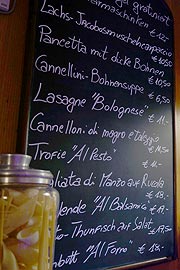 gratiniert
Lachs-Jacobsmuschelncarpaccio
€ 12,-
Pancetta mit dicke Bohnen
€ 10,50
Cannellini-Bohnensuppe
€ 6,50
Lasagne "Bolognese"
€ 11,-
Cannelloni di magro e Taleggio
€ 14,50
Trofie "Al Pesto"
€ 11,-
Tagliata di Manzo auf Rucola
€ 19,-
"Al Balsamico"
€ 19,-
Thunfisch auf Salat
€ 19,-
"Al Forno"
€ 18,-